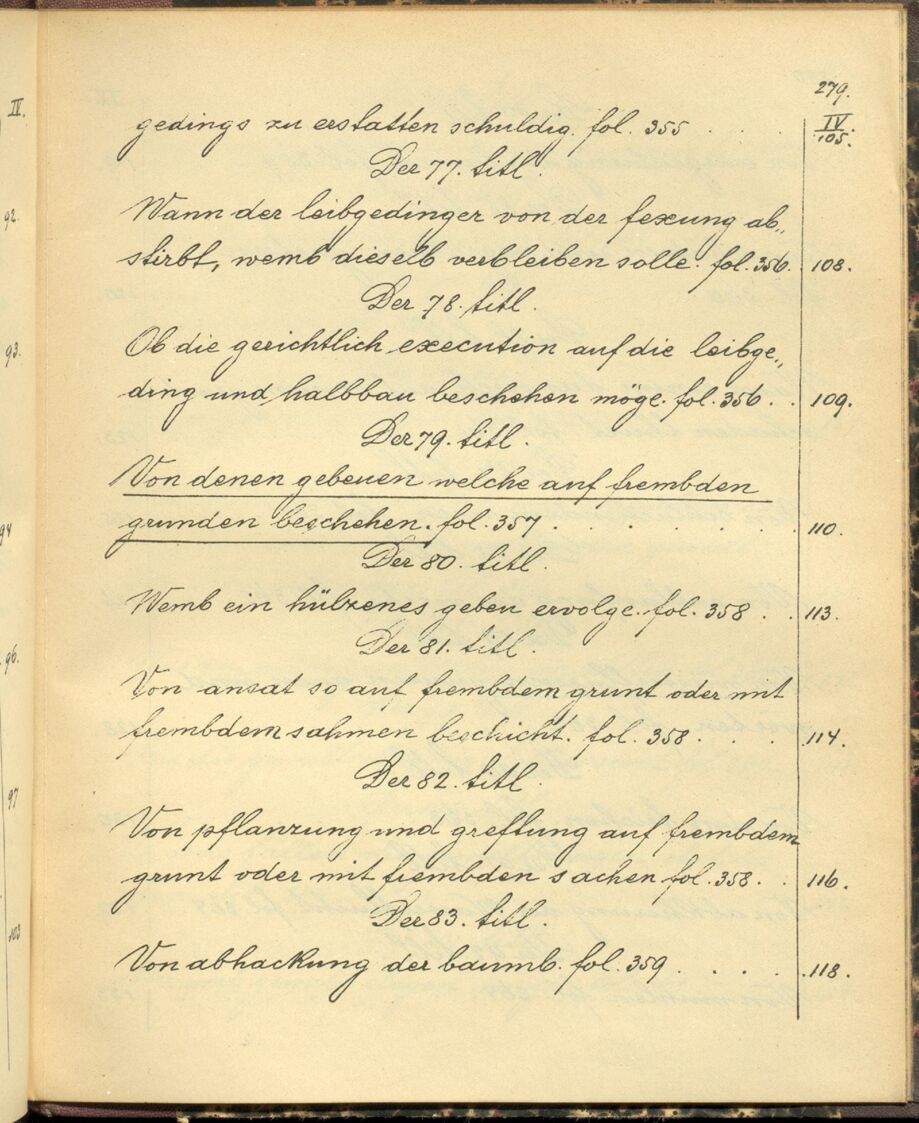 279.
IV.
gedings zu erstatten schuldig. fol. 355 . . . . IV
105.
Der 77. titl.
Wann der leibgedinger von der fexung ab„
92.
stirbt, wemb dieselb verbleiben solle. fol. 356. 108.
Der 78. titl.
Ob die gerichtlich execution auf die leibge„
93.
ding und halbbau beschehen möge. fol. 356 . . 109.
Der 79. titl.
Von denen gebeuen welche auf frembden
grunden beschehen. fol. 357 . . . . . . . 110.
94
Der 80. titl.
Wemb ein hülzenes gebeu ervolge. fol. 358 . . 113.
Der 81. titl.
96.
Von ansat so auf frembdem grunt oder mit
frembdem sahmen beschicht. fol. 358 . . . . 114.
Der 82. titl.
97
Von pflanzung und greftung auf frembdem
grunt oder mit frembden sachen fol. 358. . 116.
Der 83. titl.
103
Von abhackung der baumb. fol. 359 . . . . . 118.